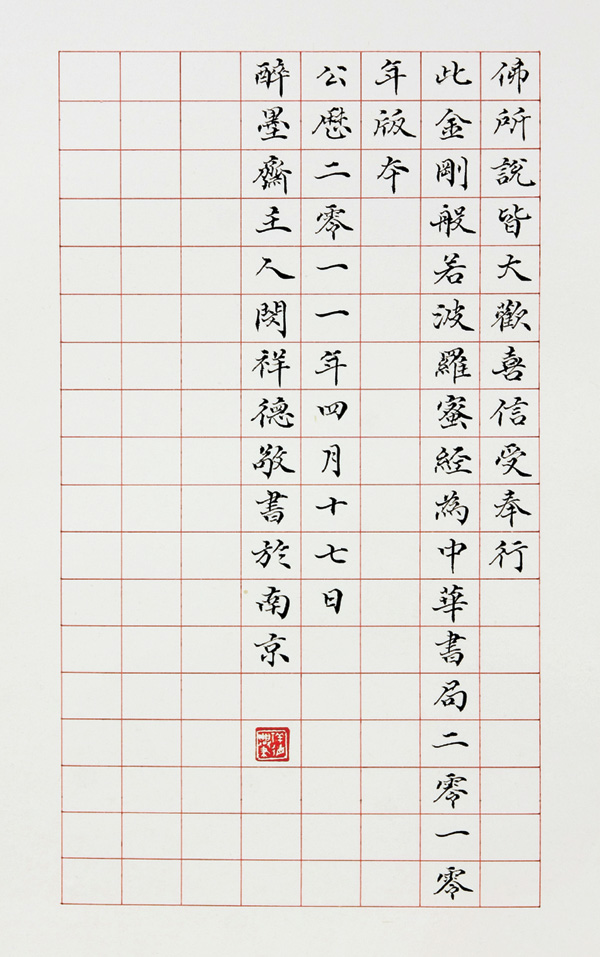 佛所說皆大歡喜信受奉行
此金剛般若波羅蜜經為中華書局二零一零
年版本
公曆二零一一年四月十七日
醉墨齋主人閔祥德敬書於南京